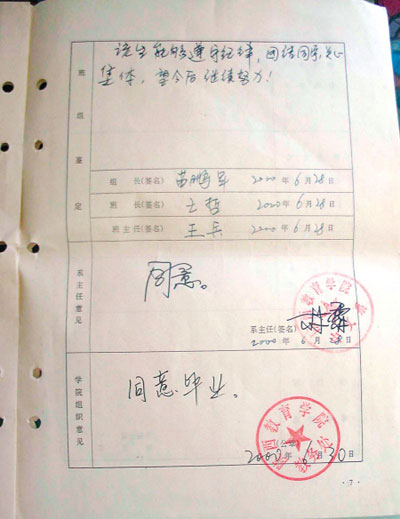 班组鉴定
该生能够遵守纪律，团结同学，关心
集体，望今后继续努力！
组 长(签名) 苗鹏军 2000 年 6 月 28 日
班 长(签名) 王哲 2000 年 6 月 28 日
班主任(签名) 王兵 2000 年 6 月 28 日
系主任意见
同意。
系主任(签名)
2000 年 6 月 28 日
学院组织意见
同意毕业。
陕西教育学院
2000 6 30 日
· 7 ·